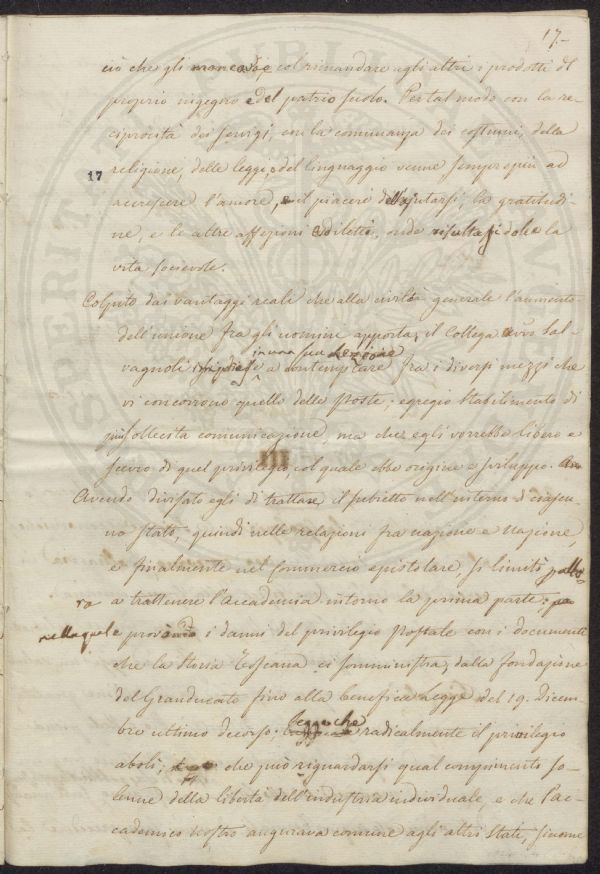 17.-
ciò che gli mancava col rimandare agli altri i prodotti del
proprio ingegno e del patrio suolo. Per tal modo con la re-
ciprocità dei servigj, con la comunanza dei costumi, della
religione, delle leggi e del linguaggio venne sempre più ad
17
accrescere l'amore, e il piacere dell'ajutarsi, la gratitudi-
ne, e le altre affezioni e diletti, onde risulta più dolce la
vita socievole.
Colpito dai vantaggi reali che alla civiltà generale l'aumento
dell'unione fra gli uomini apporta, il Collega Avv. Sal-
in una sua Lezione
vagnoli si pose a contemplare fra i diversi mezzi che
vi concorrono quello delle Poste; egregio stabilimento di
più sollecita comunicazione, ma che egli vorrebbe libero e
III
scevro di quel privilegio, col quale ebbe origine e sviluppo.
Avendo divisato egli di trattare il subietto nell'interno di ciascu-
no Stato, quindi nelle relazioni fra nazione e Nazione,
e finalmente nel Commercio epistolare, si limitò p. allo-
ra a trattenere l'Accademia intorno la prima parte;
nella quale provando i danni del privilegio Postale con i documenti
che la storia Toscana ci somministra, dalla fondazione
del Granducato fino alla benefica Legge del 19. Dicem-
bre ultimo decorso; Legge che radicalmente il privilegio
abolì; che può riguardarsi qual compimento so-
lenne della libertà dell'industria individuale, e che l'Ac-
cademico nostro augurava comune agli altri Stati, siccome